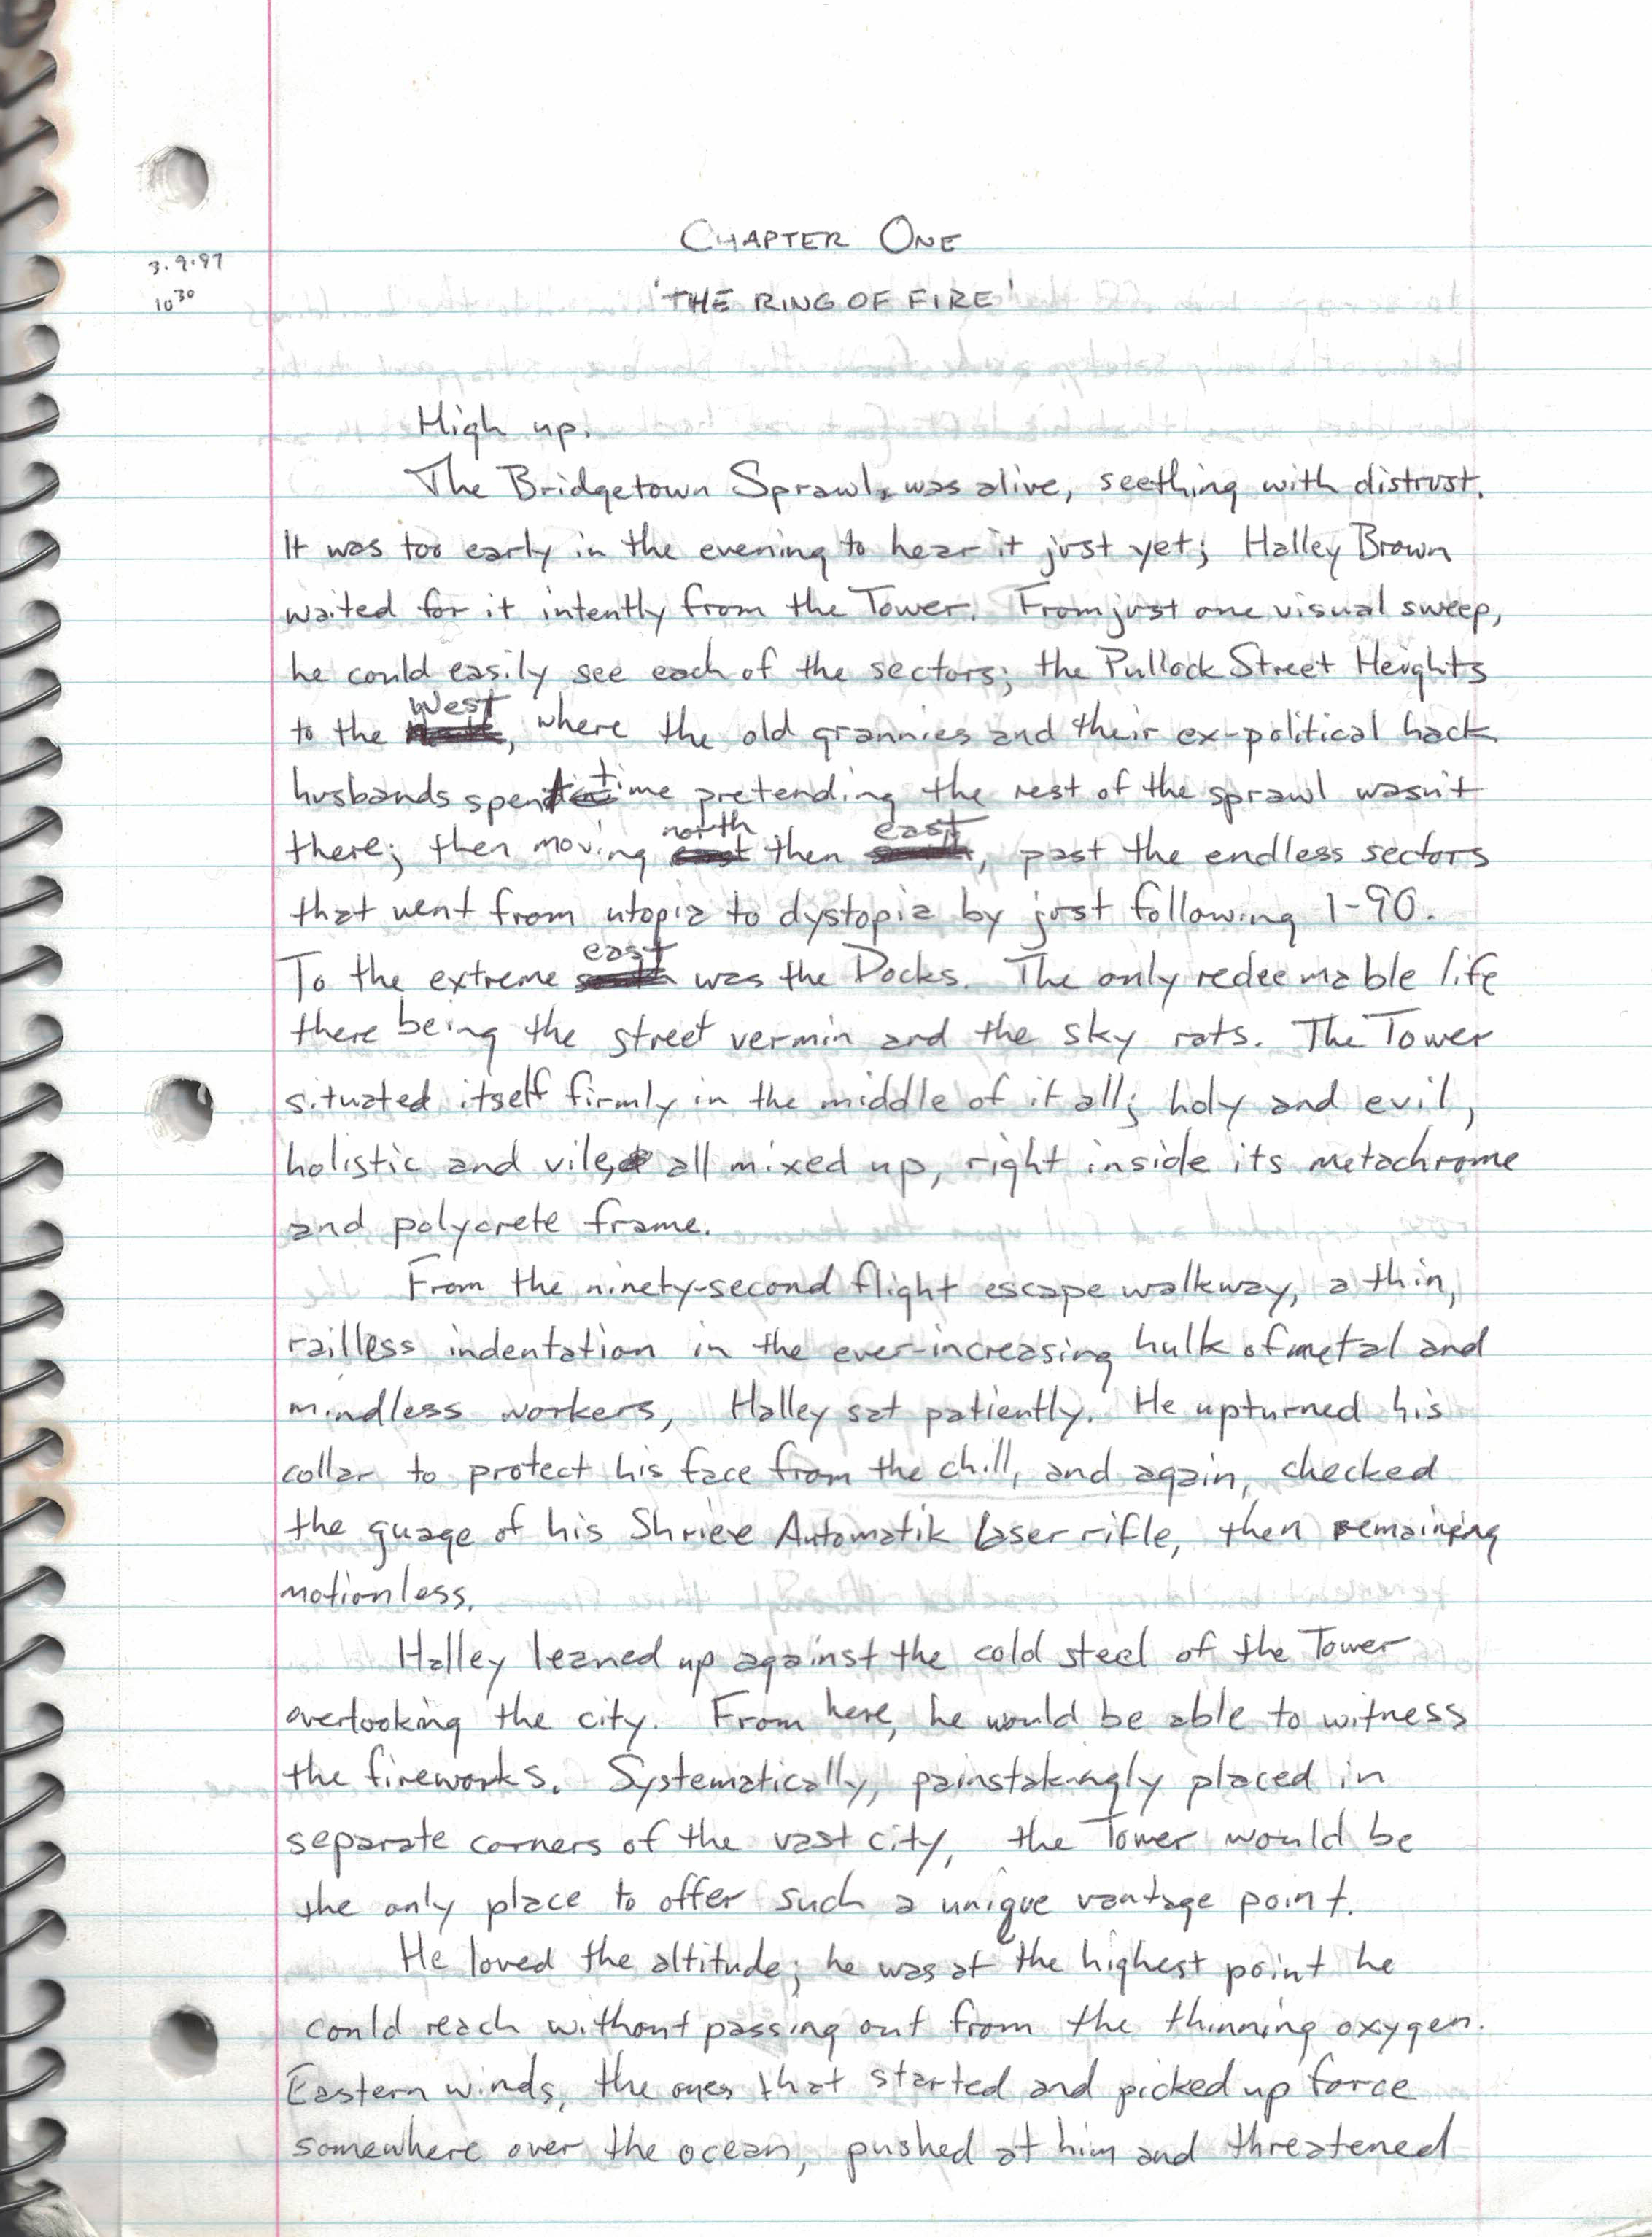 CHAPTER ONE
3.9.97
10 30
'THE RING OF FIRE'
High up.
The Bridgetown Sprawl, was alive, seething with distrust.
It was too early in the evening to hear it just yet; Halley Brown
waited for it intently from the Tower. From just one visual sweep,
he could easily see each of the sectors; the Pullock Street Heights
to the West, where the old grannies and their ex-political hack
husbands spent time pretending the rest of the sprawl wasn't
there; then moving north then east, past the endless sectors
that went from utopia to dystopia by just following I-90.
To the extreme east was the Docks. The only redeemable life
there being the street vermin and the sky rats. The Tower
situated itself firmly in the middle of it all; holy and evil,
holistic and vile, all mixed up, right inside its metachrome
and polycrete frame.
From the ninety-second flight escape walkway, a thin,
railless indentation in the ever-increasing hulk of metal and
mindless workers, Halley sat patiently. He upturned his
collar to protect his face from the chill, and again, checked
the guage of his Automatik Laser rifle, then remaining
motionless.
Halley leaned up against the cold steel of the Tower
overlooking the city. From here, he would be able to witness
the fireworks. Systematically, painstakingly placed in
separate corners of the vast city, the Tower would be
the only place to offer such a unique vantage point.
He loved the altitude; he was at the highest point he
could reach without passing out from the thinning oxygen.
Eastern winds, the ones that started and picked up force
somewhere over the ocean, pushed at him and threatened